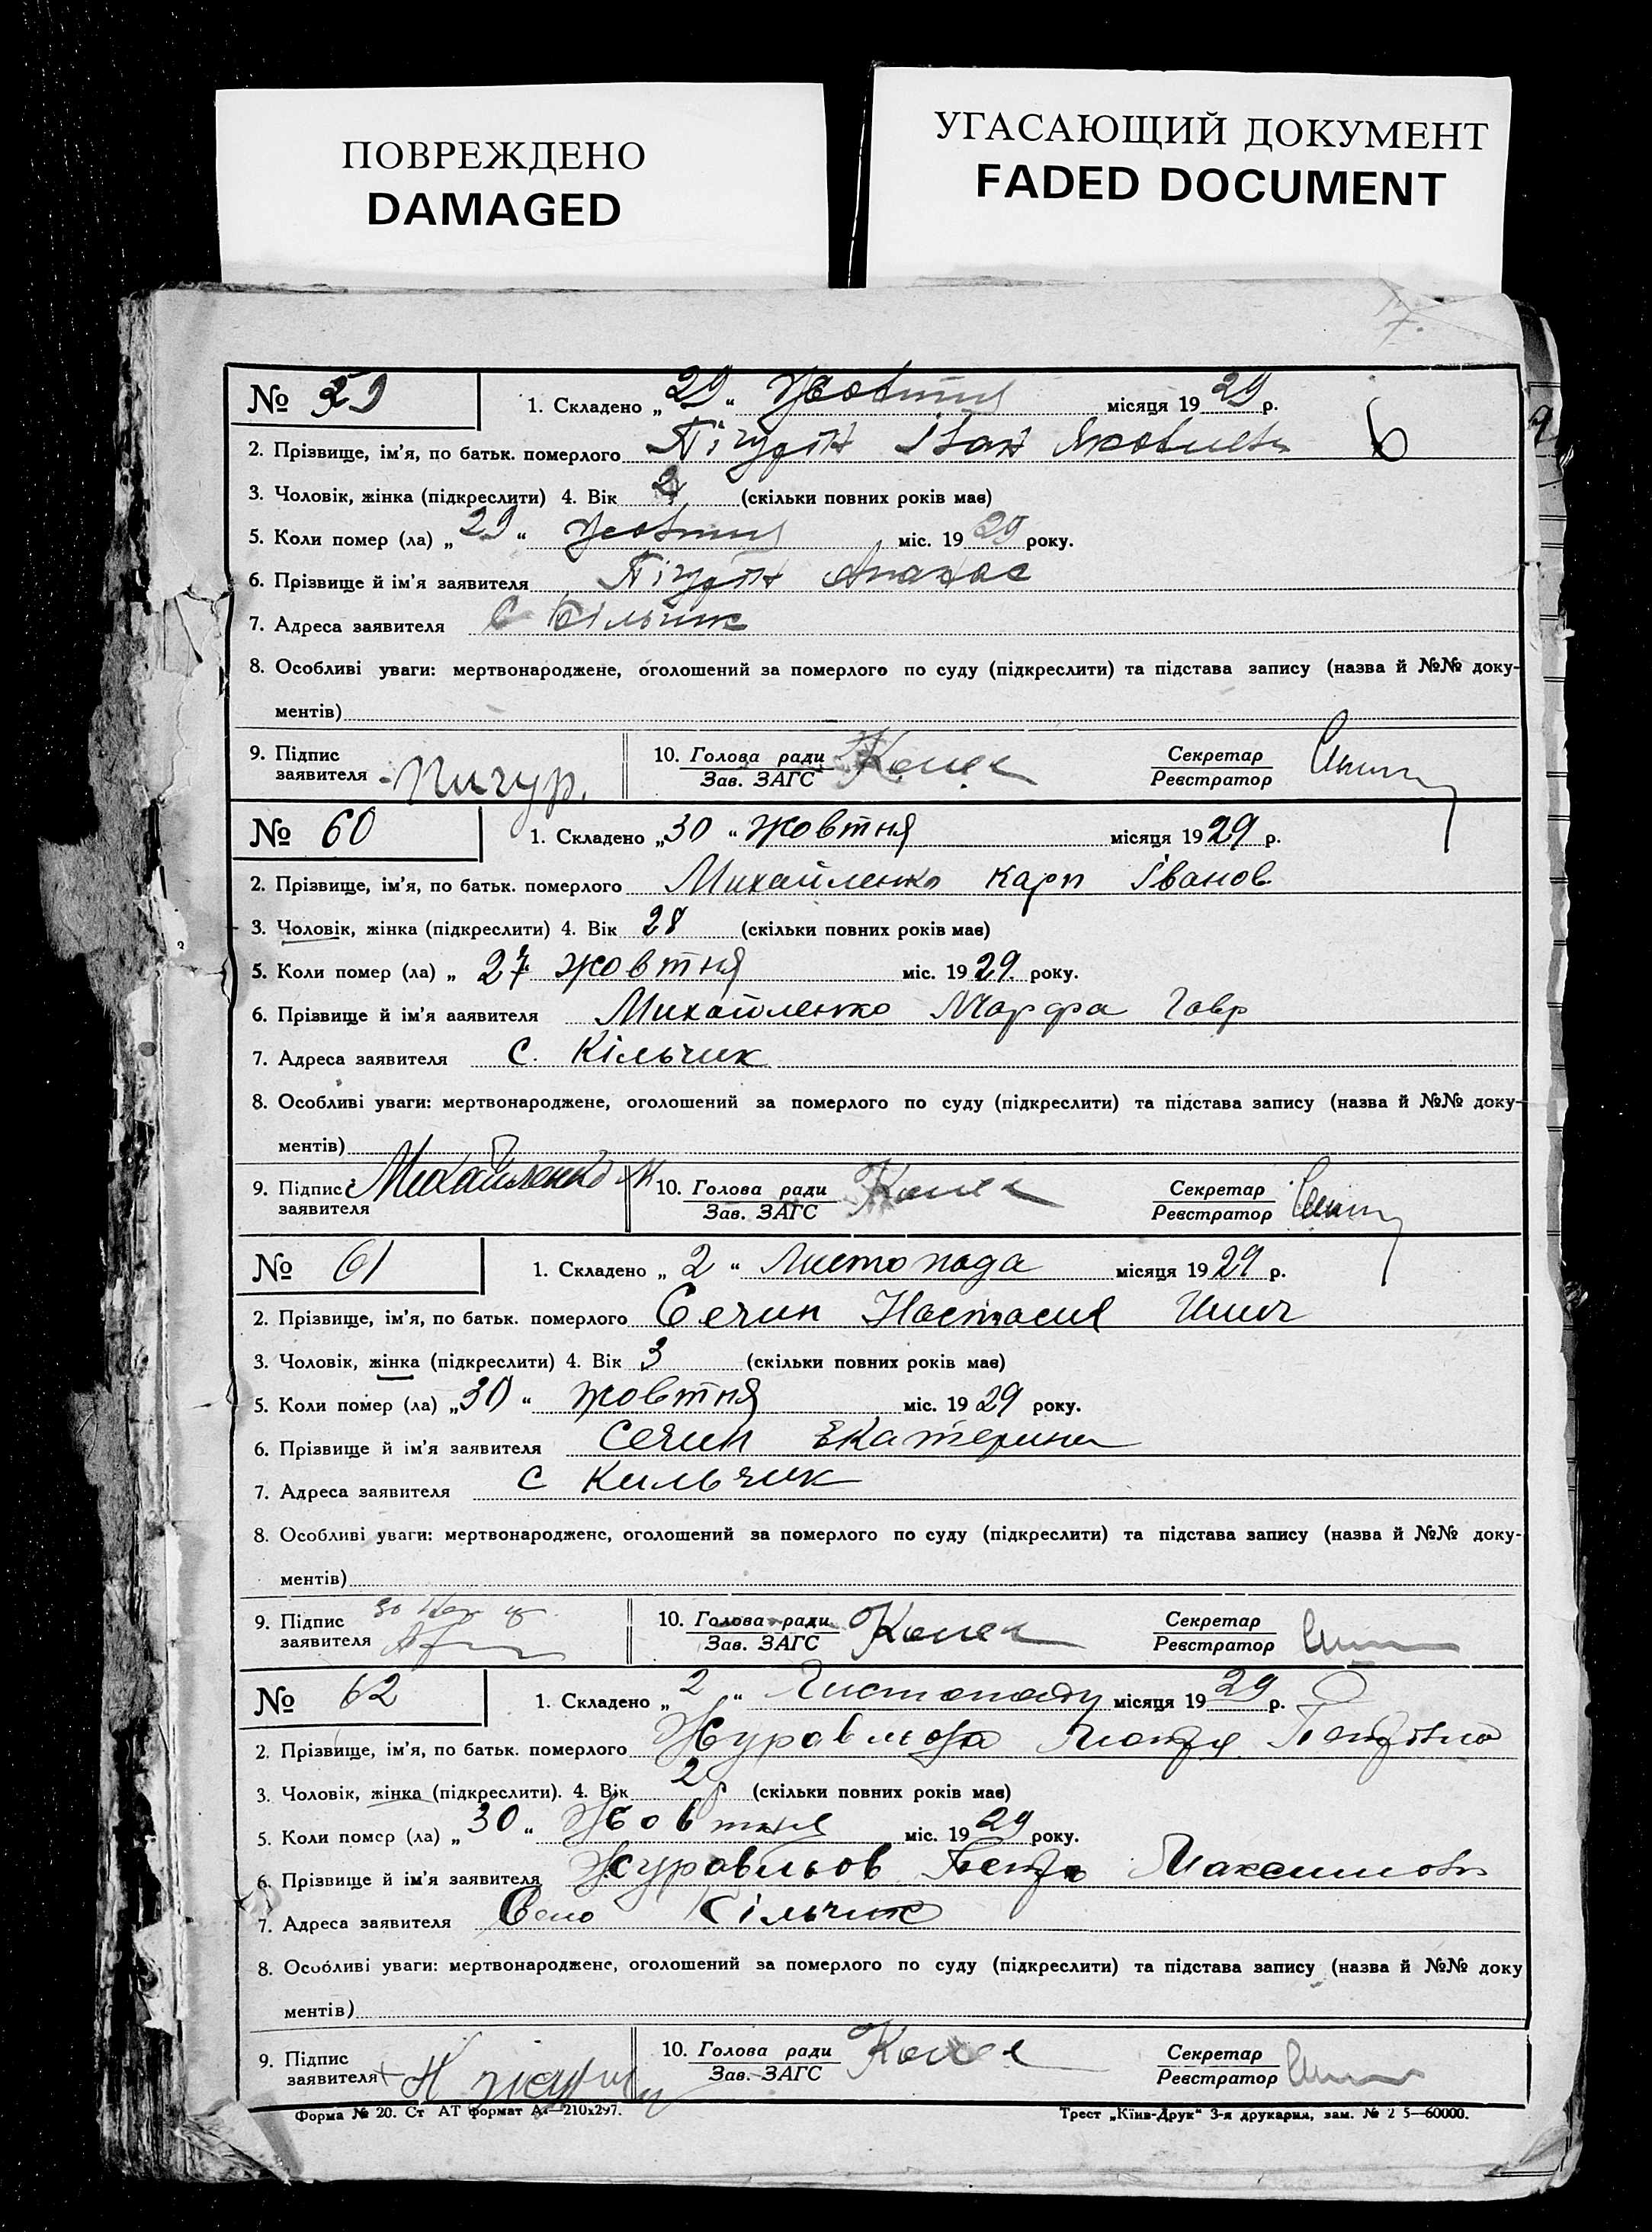 ПОВРЕЖДЕНО
DAMAGED
УГАСАЮЩИЙ ДОКУМЕНТ
FADED DOCUMENT
№ 59
1. Складено „ 29 “ Жовтня місяця 19 29 р.
2. Прізвище, ім'я, по батьк. померлого Іван
3. Чоловік, жінка (підкреслити) 4. Вік 2 (скільки повних років має)
5. Коли помер (ла) „ 29 “ Жовтня міс. 19 29 року.
6. Прізвище й ім'я заявителя
7. Адреса заявителя С Кільчик
8. Особливі уваги: мертвонароджене, оголошений за померлого по суду (підкреслити) та підстава запису (назва й №№ доку-
ментів)
9. Підпис заявителя Пигур. 10. Голова ради Зав. ЗАГС Секретар Реєстратор
№ 60
1. Складено „ 30 “ жовтня місяця 19 29 р.
2. Прізвище, ім'я, по батьк. померлого Михайленко Карп Іванов
3. Чоловік, жінка (підкреслити) 4. Вік 28 (скільки повних років має)
5. Коли помер (ла) „ 27 жовтня міс. 19 29. року.
6. Прізвище й ім'я заявителя Михайленко Марфа Гавр
7. Адреса заявителя С. Кільчик
8. Особливі уваги: мертвонароджене, оголошений за померлого по суду (підкреслити) та підстава запису (назва й №№ доку-
ментів)
9. Підпис заявителя Михайленко М 10. Голова ради Зав. ЗАГС Секретар Реєстратор
№ 61
1. Складено „ 2 “ Листопада місяця 19 29 р.
2. Прізвище, ім'я, по батьк. померлого Сечин Настасия
3. Чоловік, жінка (підкреслити) 4. Вік 3 (скільки повних років має)
5. Коли помер (ла) „ 30 “ жовтня міс. 19 29 року.
6. Прізвище й ім'я заявителя Сечин Екатерина
7. Адреса заявителя С Кильчик
8. Особливі уваги: мертвонароджене, оголошений за померлого по суду (підкреслити) та підстава запису (назва й №№ доку-
ментів)
9. Підпис заявителя 10. Голова ради Зав. ЗАГС Секретар Реєстратор
№ 62
1. Складено „ 2 “ Листопаду місяця 19 29 р.
2. Прізвище, ім'я, по батьк. померлого Журавльова Петрівна
3. Чоловік, жінка (підкреслити). 4. Вік 2 (скільки повних років має)
5. Коли помер (ла) „ 30 “ Жовтня міс. 19 29 року.
6. Прізвище й ім'я заявителя Журавльов Петро Максимов
7. Адреса заявителя Село Кільчик
8. Особливі уваги: мертвонароджене, оголошений за померлого по суду (підкреслити) та підстава запису (назва й №№ доку
ментів)
9. Підпис заявителя 10. Голова ради Зав. ЗАГС Секретар Реєстратор
Форма № 20. Ст АТ формат А4—210х297. Трест „Київ-Друк“ 3-я друкарня, зам. № 2 5—60000.